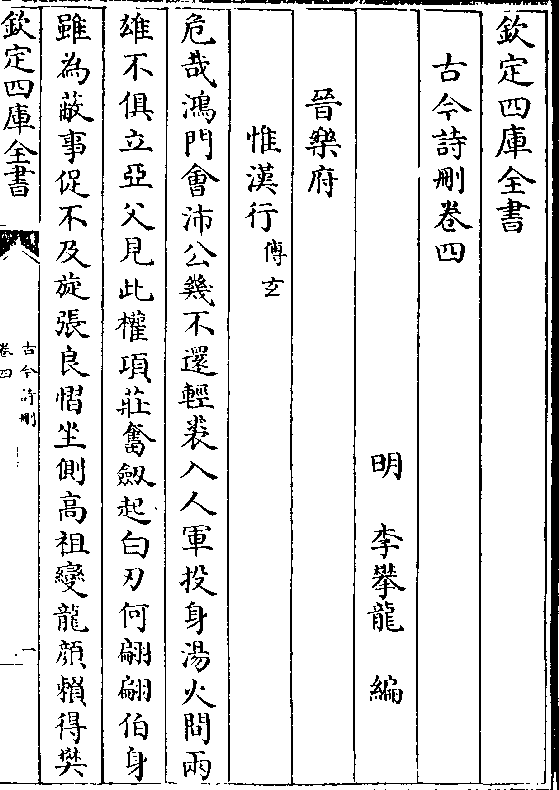 欽定四庫全書
古今詩刪卷四
明 李攀龍 編
晉樂府
惟漢行傅玄
危哉鴻門會沛公幾不還輕裘入人軍投身湯火間兩
雄不俱立亞父見此權項莊奮劔起白刃何翩翩伯身
雖為蔽事促不及旋張良慴坐側高祖變龍顔賴得樊
欽定四庫全書
古今詩刪
卷四
一